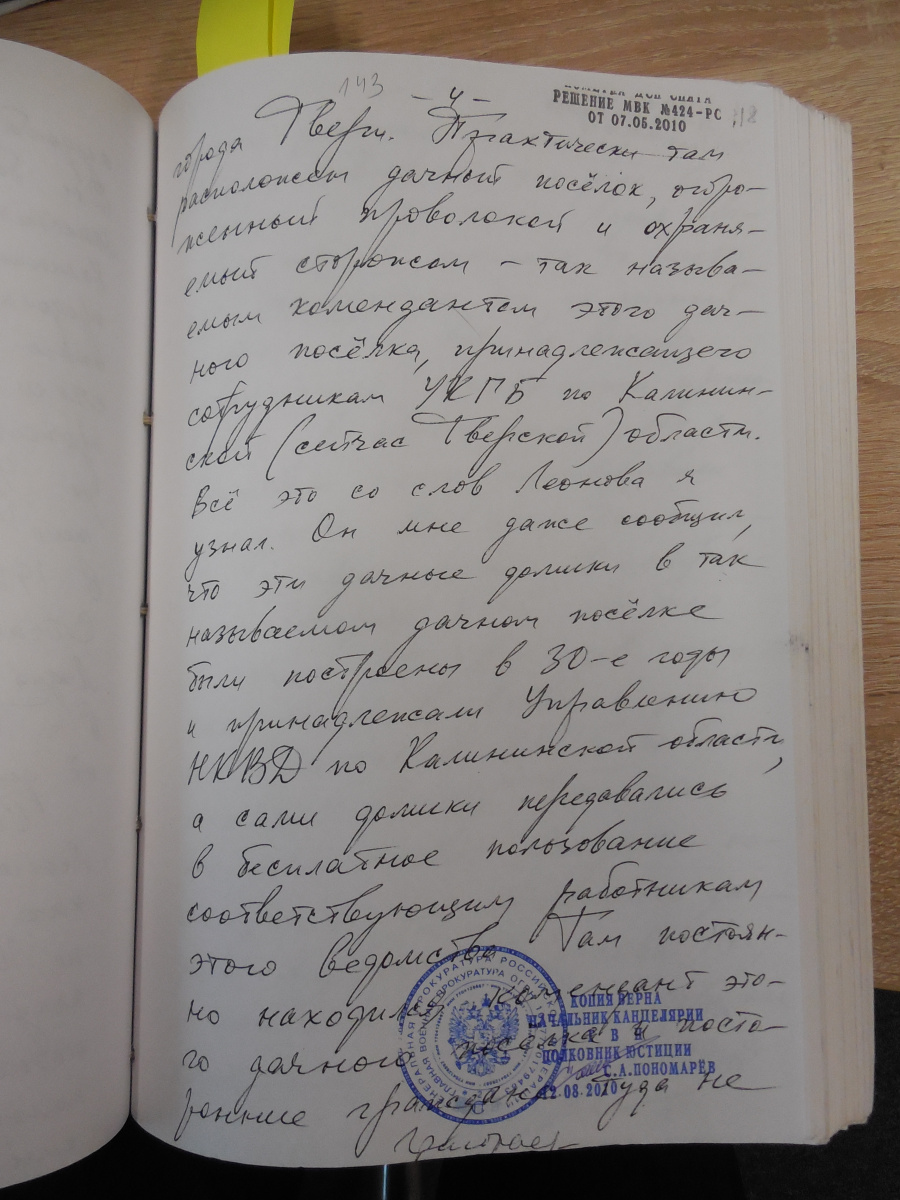 143
-4-
РЕШЕНИЕ МВК №424-РС
ОТ 07.05.2010
города Твери. Практически там
расположен дачный посёлок, огоро-
женный проволокой и охраня-
емый сторожом – так называ-
емым комендантом этого дач-
ного посёлка, принадлежащего
сотрудникам УКГБ по Калинин-
ской (сейчас Тверской) области.
Всё это со слов Леонова я
узнал. Он мне даже сообщил,
что эти дачные домики в так
называемом дачном посёлке
были построены в 30-е годы
и принадлежали Управлению
НКВД по Калининской области,
а сами домики передавались
в бесплатное пользование
соответствующим работникам
этого ведомства. Там постоян-
но находился комендант это-
го дачного посёлка и посто-
ронние граждане туда не
КОПИЯ ВЕРНА
НАЧАЛЬНИК КАНЦЕЛЯРИИ
ПОЛКОВНИК ЮСТИЦИИ
С.А.ПОНОМАРЁВ
12.08.2010